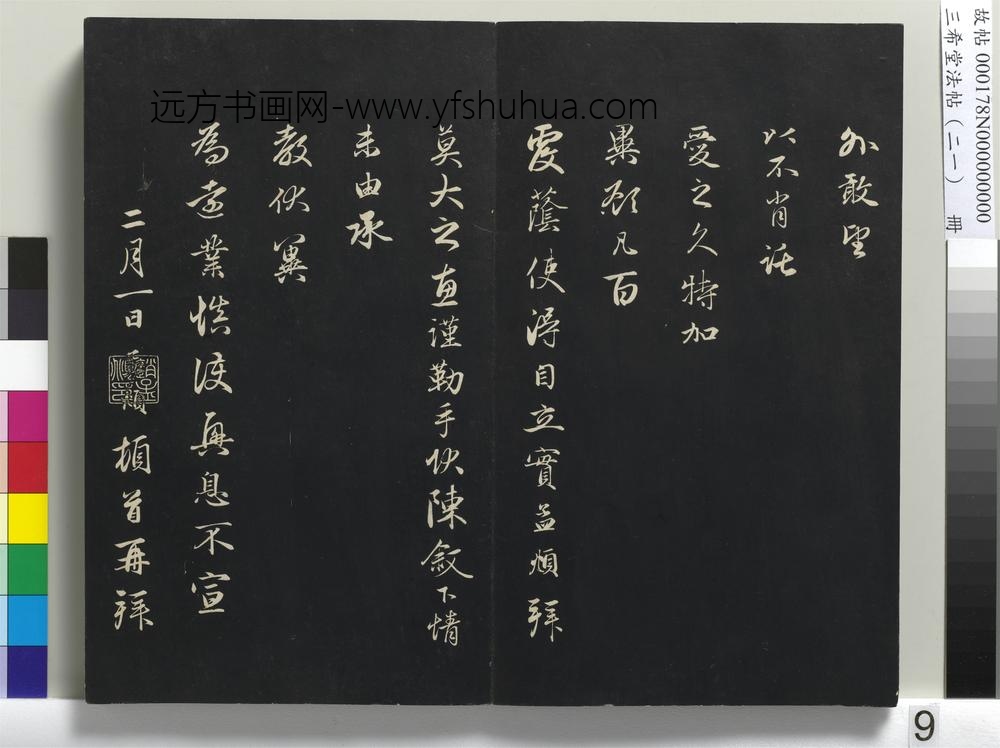 外敢望
以不肖託
愛之久特加
畢願凡百
覆蔭使得自立實孟頫拜
莫大之惠謹勒手狀陳敘下情
未由承
教伏冀
為遠業慎護興息不宣
二月一日
頓首再拜
远方书画网-www.yfshuhua.com
故帖 000178N000000000
三希堂法帖（二一） 册
9